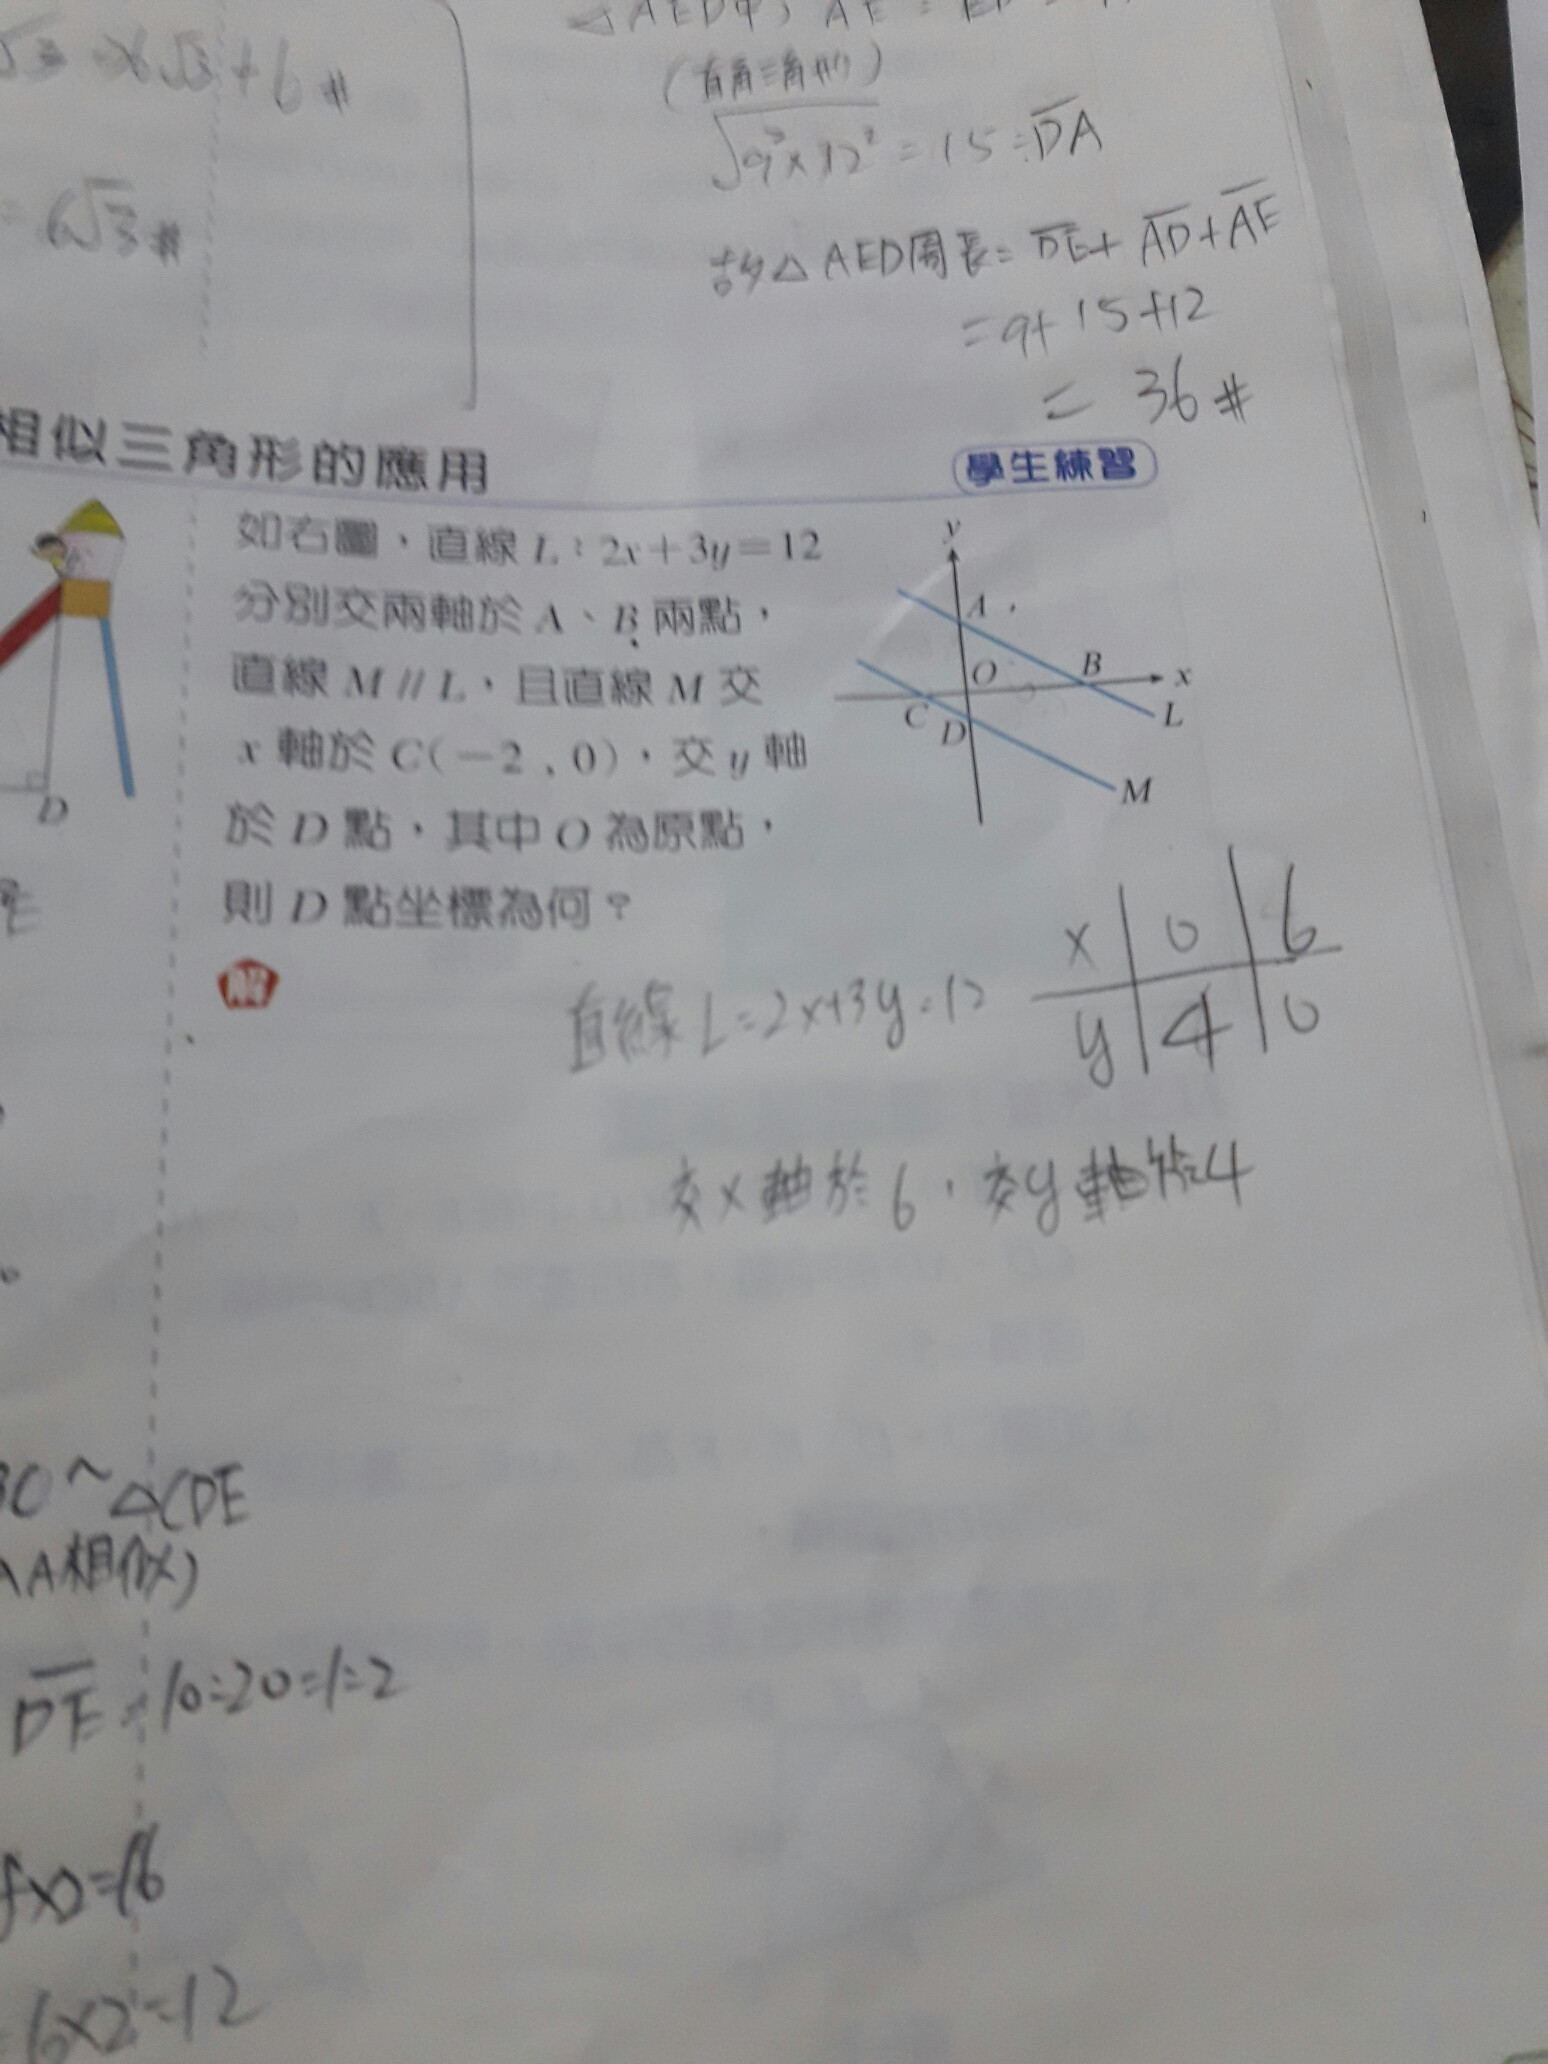 √3 + 6 #
= 6√3 #
(直角三角形)
√9²×12² = 15 = DA
故△AED周長 = DE + AD + AE
= 9 + 15 + 12
= 36 #
相似三角形的應用
學生練習
如右圖，直線 L：2x+3y=12
分別交兩軸於 A、B 兩點，
直線 M // L，且直線 M 交
x 軸於 C(-2，0)，交 y 軸
於 D 點，其中 O 為原點，
則 D 點坐標為何？
解
y
A
O
B
x
C
D
L
M
D
直線 L=2x+3y=12
x 0 6
y 4 0
交x軸於6，交y軸於4
BC ~ △CDE
AA相似)
DE = 10:20=1:2
×2=16
= 6×2=12